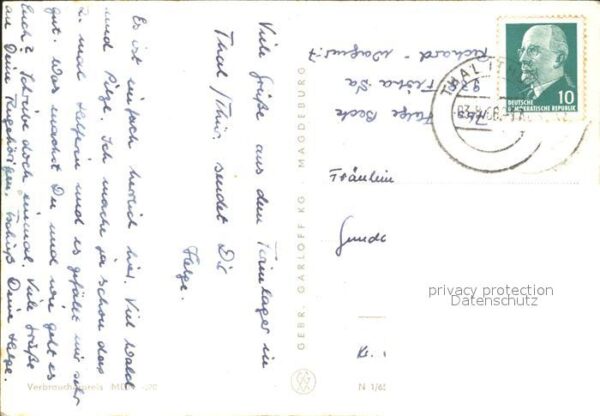 Viele Grüße aus dem Ferienlager in
Thal/Thür. sendet Dir
Helge.
Es ist einfach herrlich hier. Viel Wald
und Pilze. Ich mache ja schon das
2. mal Helferin und es gefällt mir sehr
gut. Was machst Du und wie geht es
Euch? Schreibe doch einmal. Viele Grüße
an Deine Angehörigen. Tschüß Deine Helge.
Helge Beck
Freital Sa
Richard - Wagner-
GEBR. GARLOFF KG · MAGDEBURG
THAL (THÜR
DEUTSCHE
DEMOKRATISCHE REPUBLIK
10
Fräulein
privacy protection
Datenschutz
Verbraucherpreis MDN
N 1/65